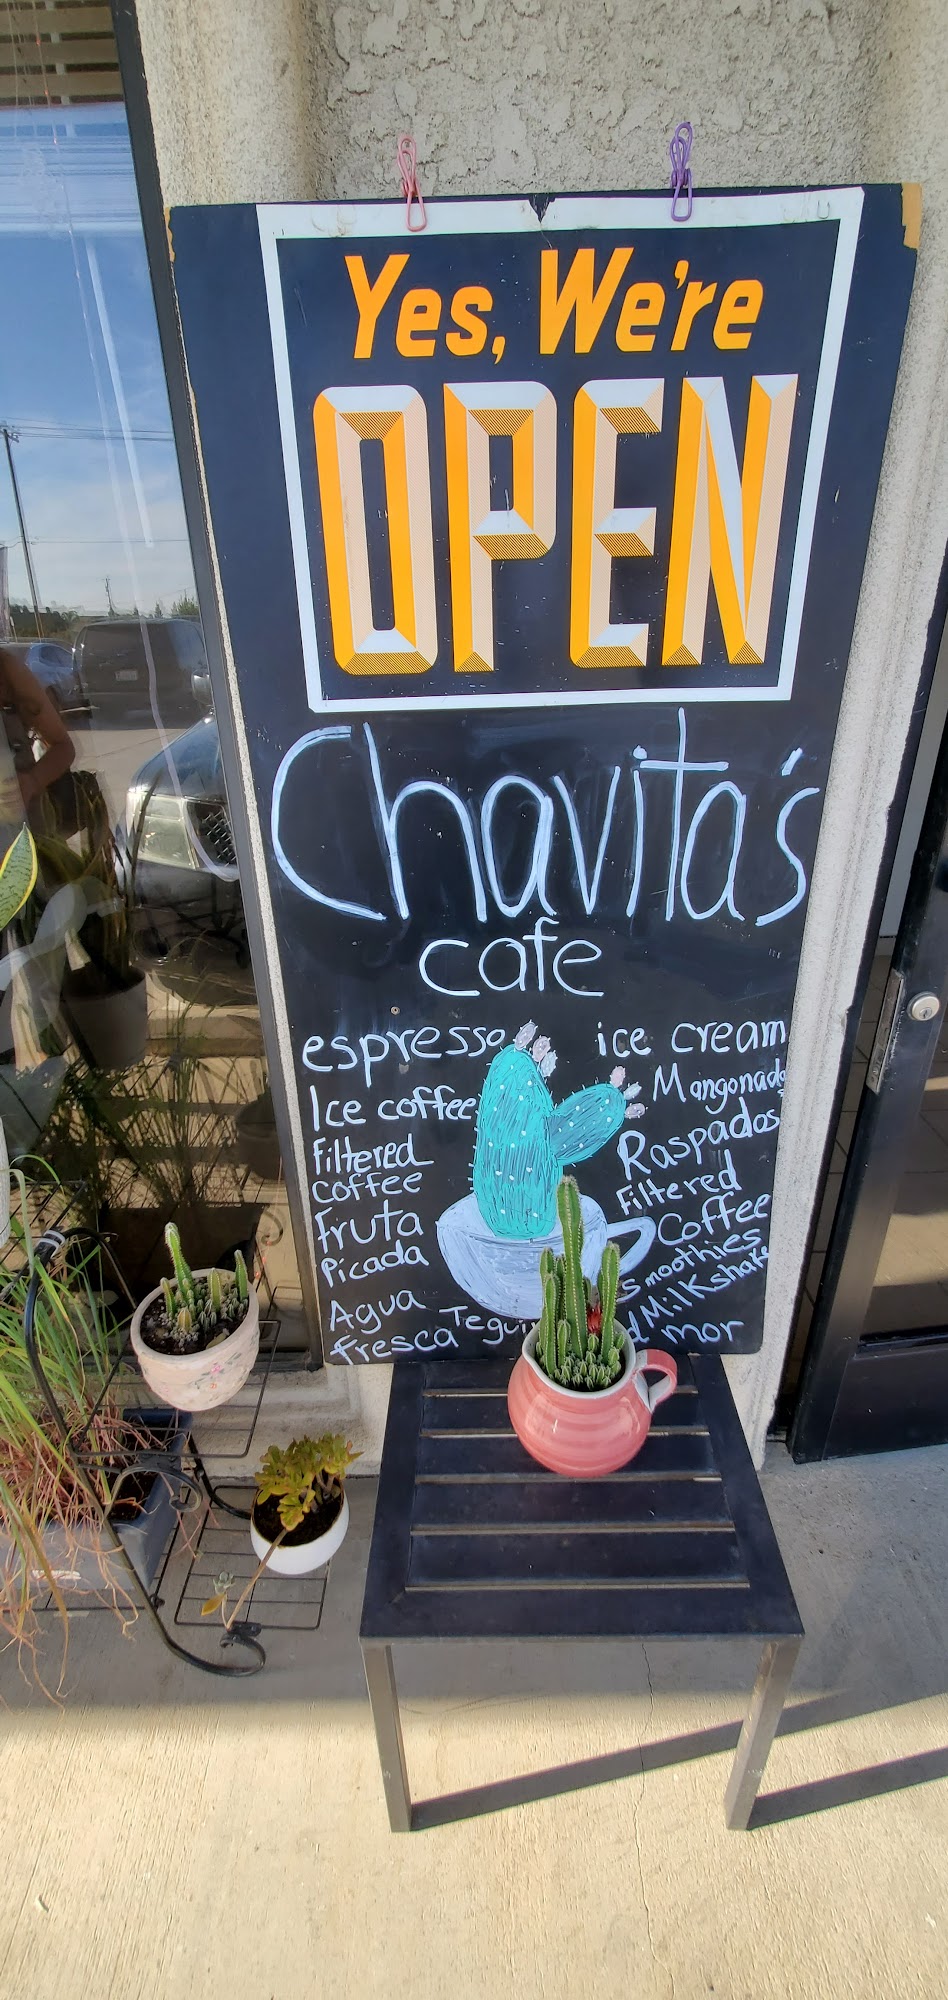 Yes, We're
OPEN
Chavita's
cafe
espresso
Ice coffee
Filtered
coffee
Fruta
Picada
Agua
fresca
ice cream
Mangonada
Raspados
Filtered
Coffee
smoothies
Milkshake
mor